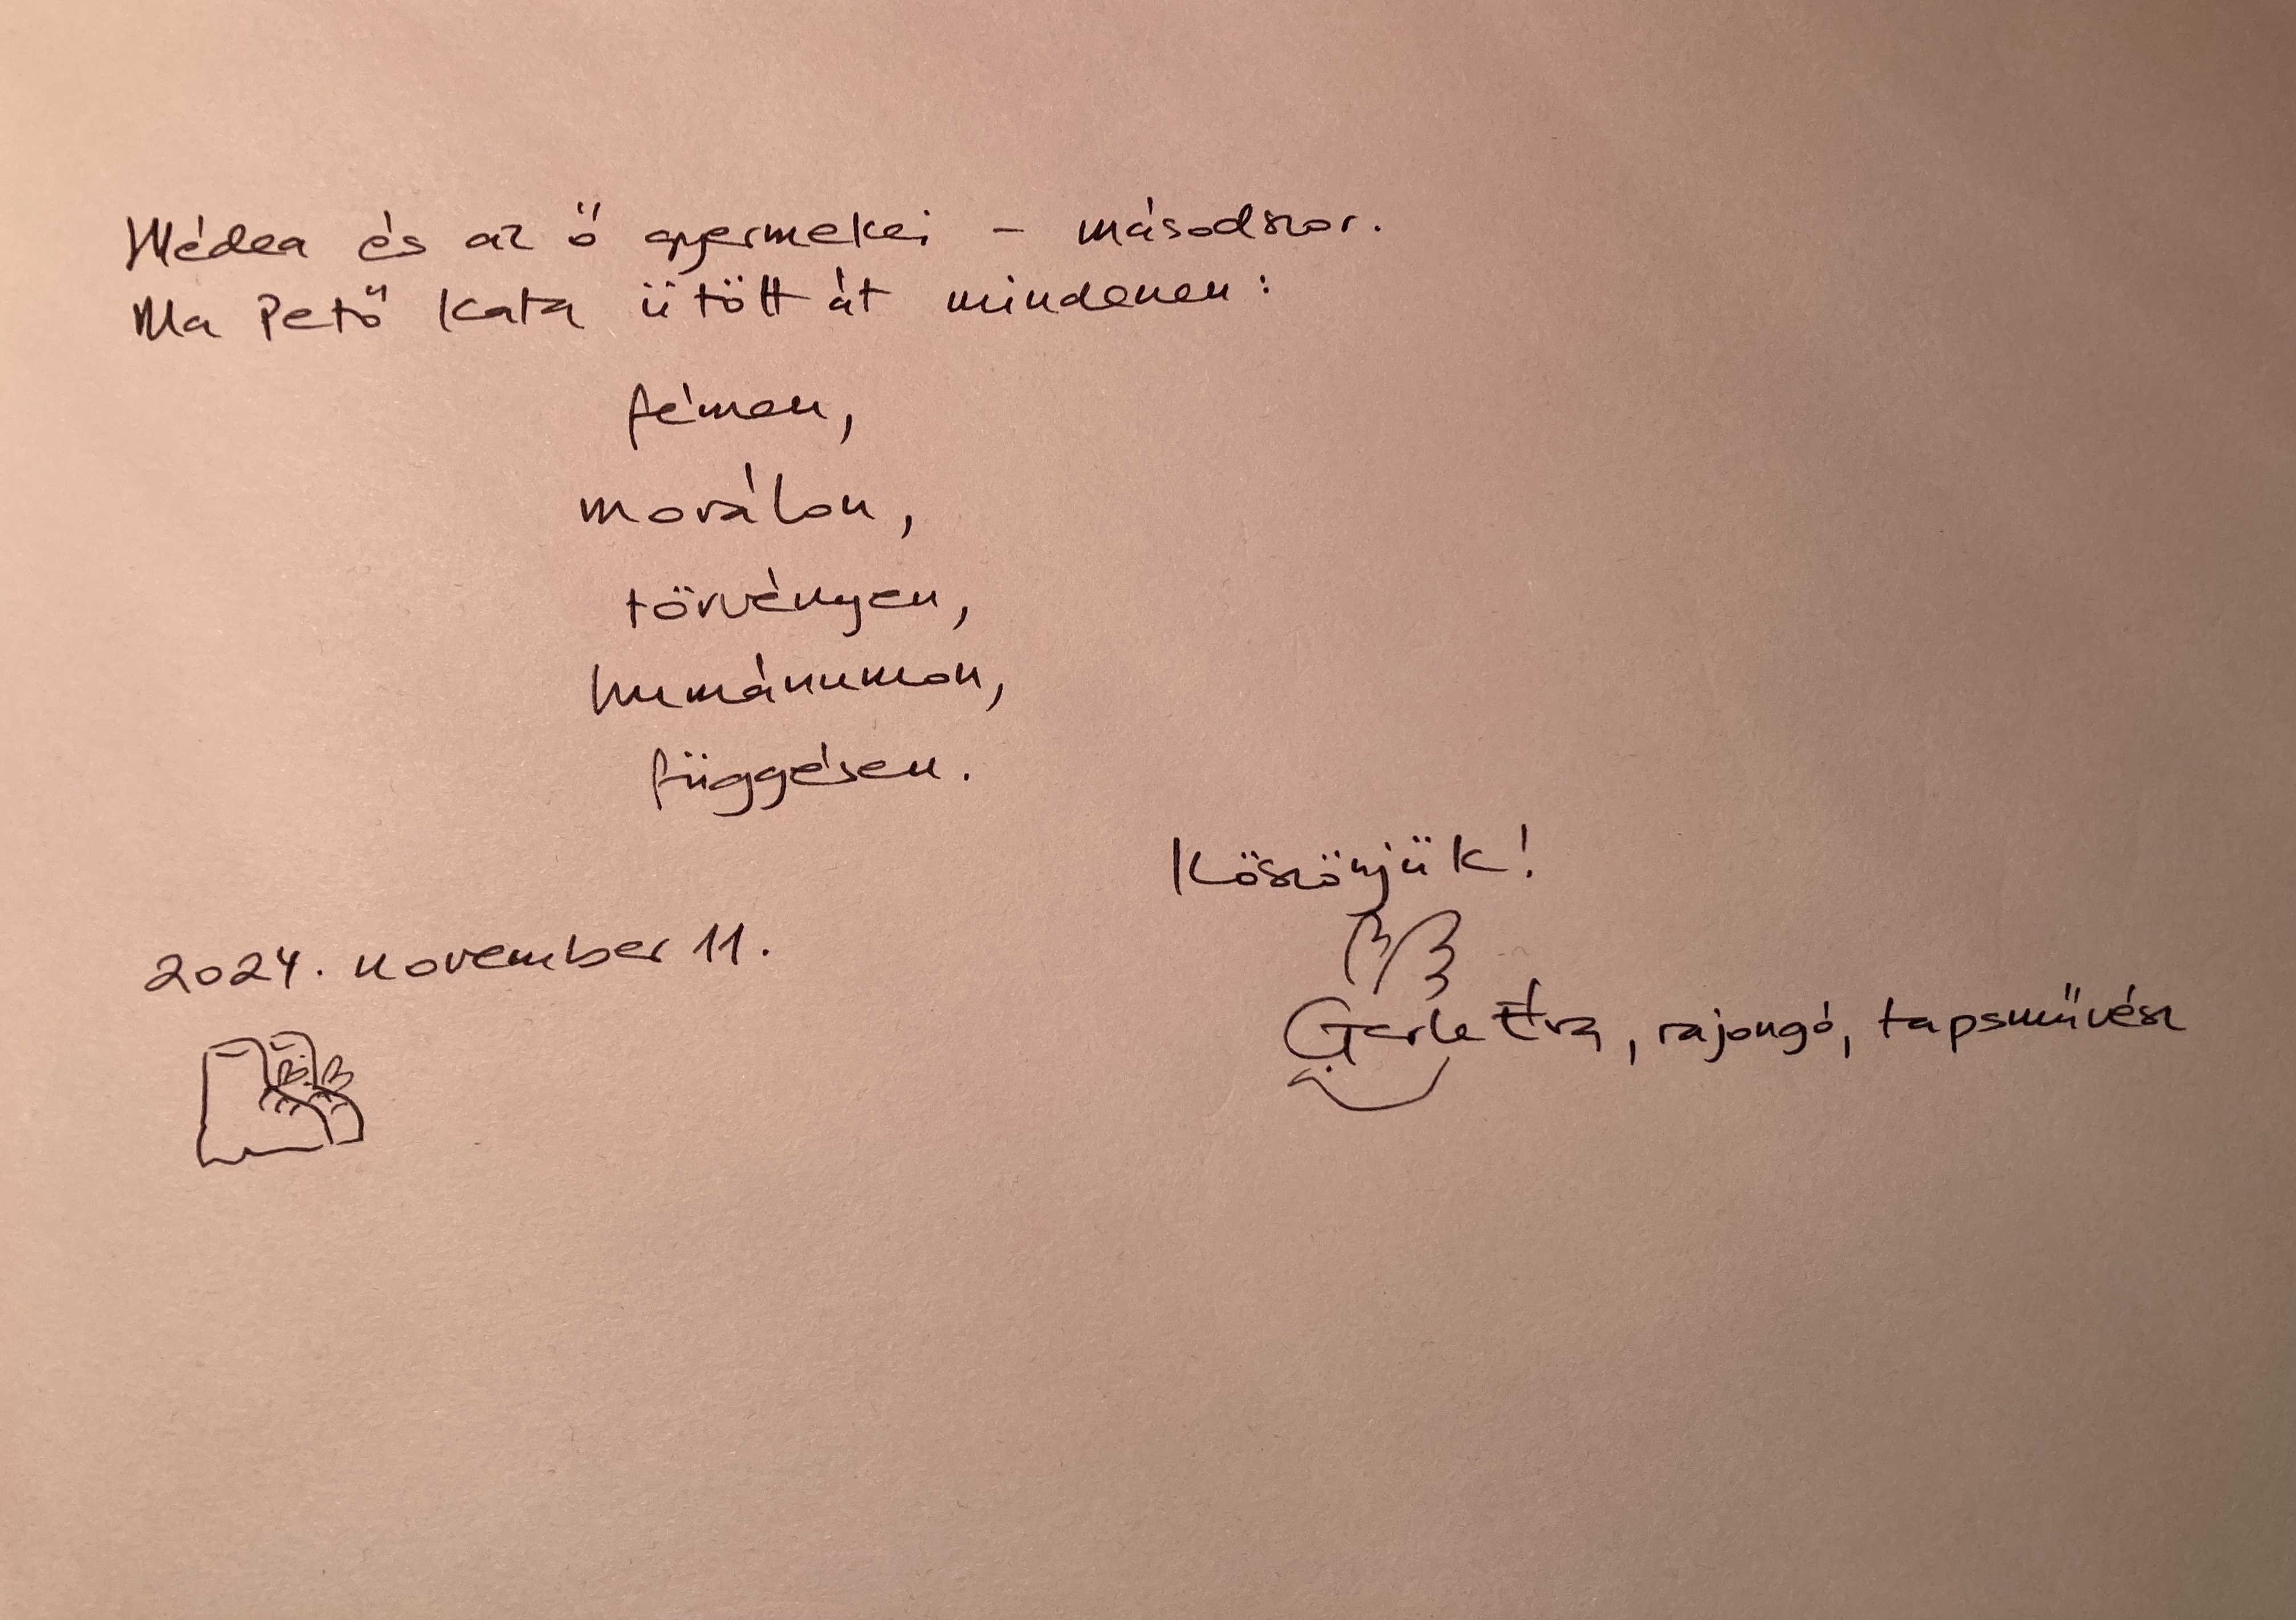 Médea és az ő gyermekei - másodszor.
Ma Pető Kata ütött át mindenen:
fémen,
morálon,
törvényen,
humánumon,
függésen.
Köszönjük!
2024. november 11.
Éva, rajongó, tapsművész